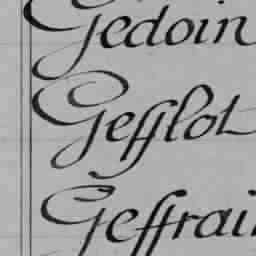 Gedoin
Gefflot
Geffrai